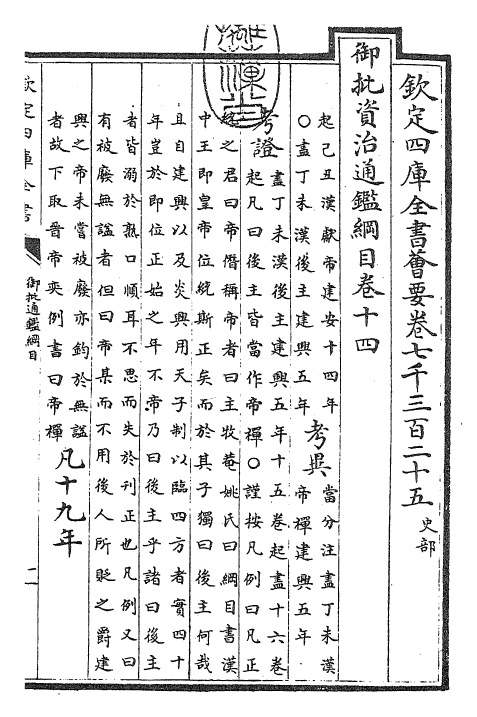 欽定四庫全書薈要卷七千三百二十五 史部
御批資治通鑑綱目卷十四
起己丑漢獻帝建安十四年
○盡丁未漢後主建興五年
考異
當分注盡丁未漢
帝禪建興五年
考證
盡丁未漢後主建興五年十五卷起盡十六卷
起凡曰後主皆當作帝禪○謹按凡例曰凡正
統之君曰帝僭稱帝者曰主牧菴姚氏曰綱目書漢
中王即皇帝位統斯正矣而於其子獨曰後主何哉
且自建興以及炎興用天子制以臨四方者實四十
年豈於即位正始之年不帝乃曰後主乎諸曰後主
者皆溺於熟口順耳不思而失於刊正也凡例又曰
有被廢無諡者但曰帝某而不用後人所貶之爵建
興之帝未嘗被廢亦鈞於無諡
者故下取晉帝奕例書曰帝禪
凡十九年
欽定四庫全書
御批通鑑綱目
一